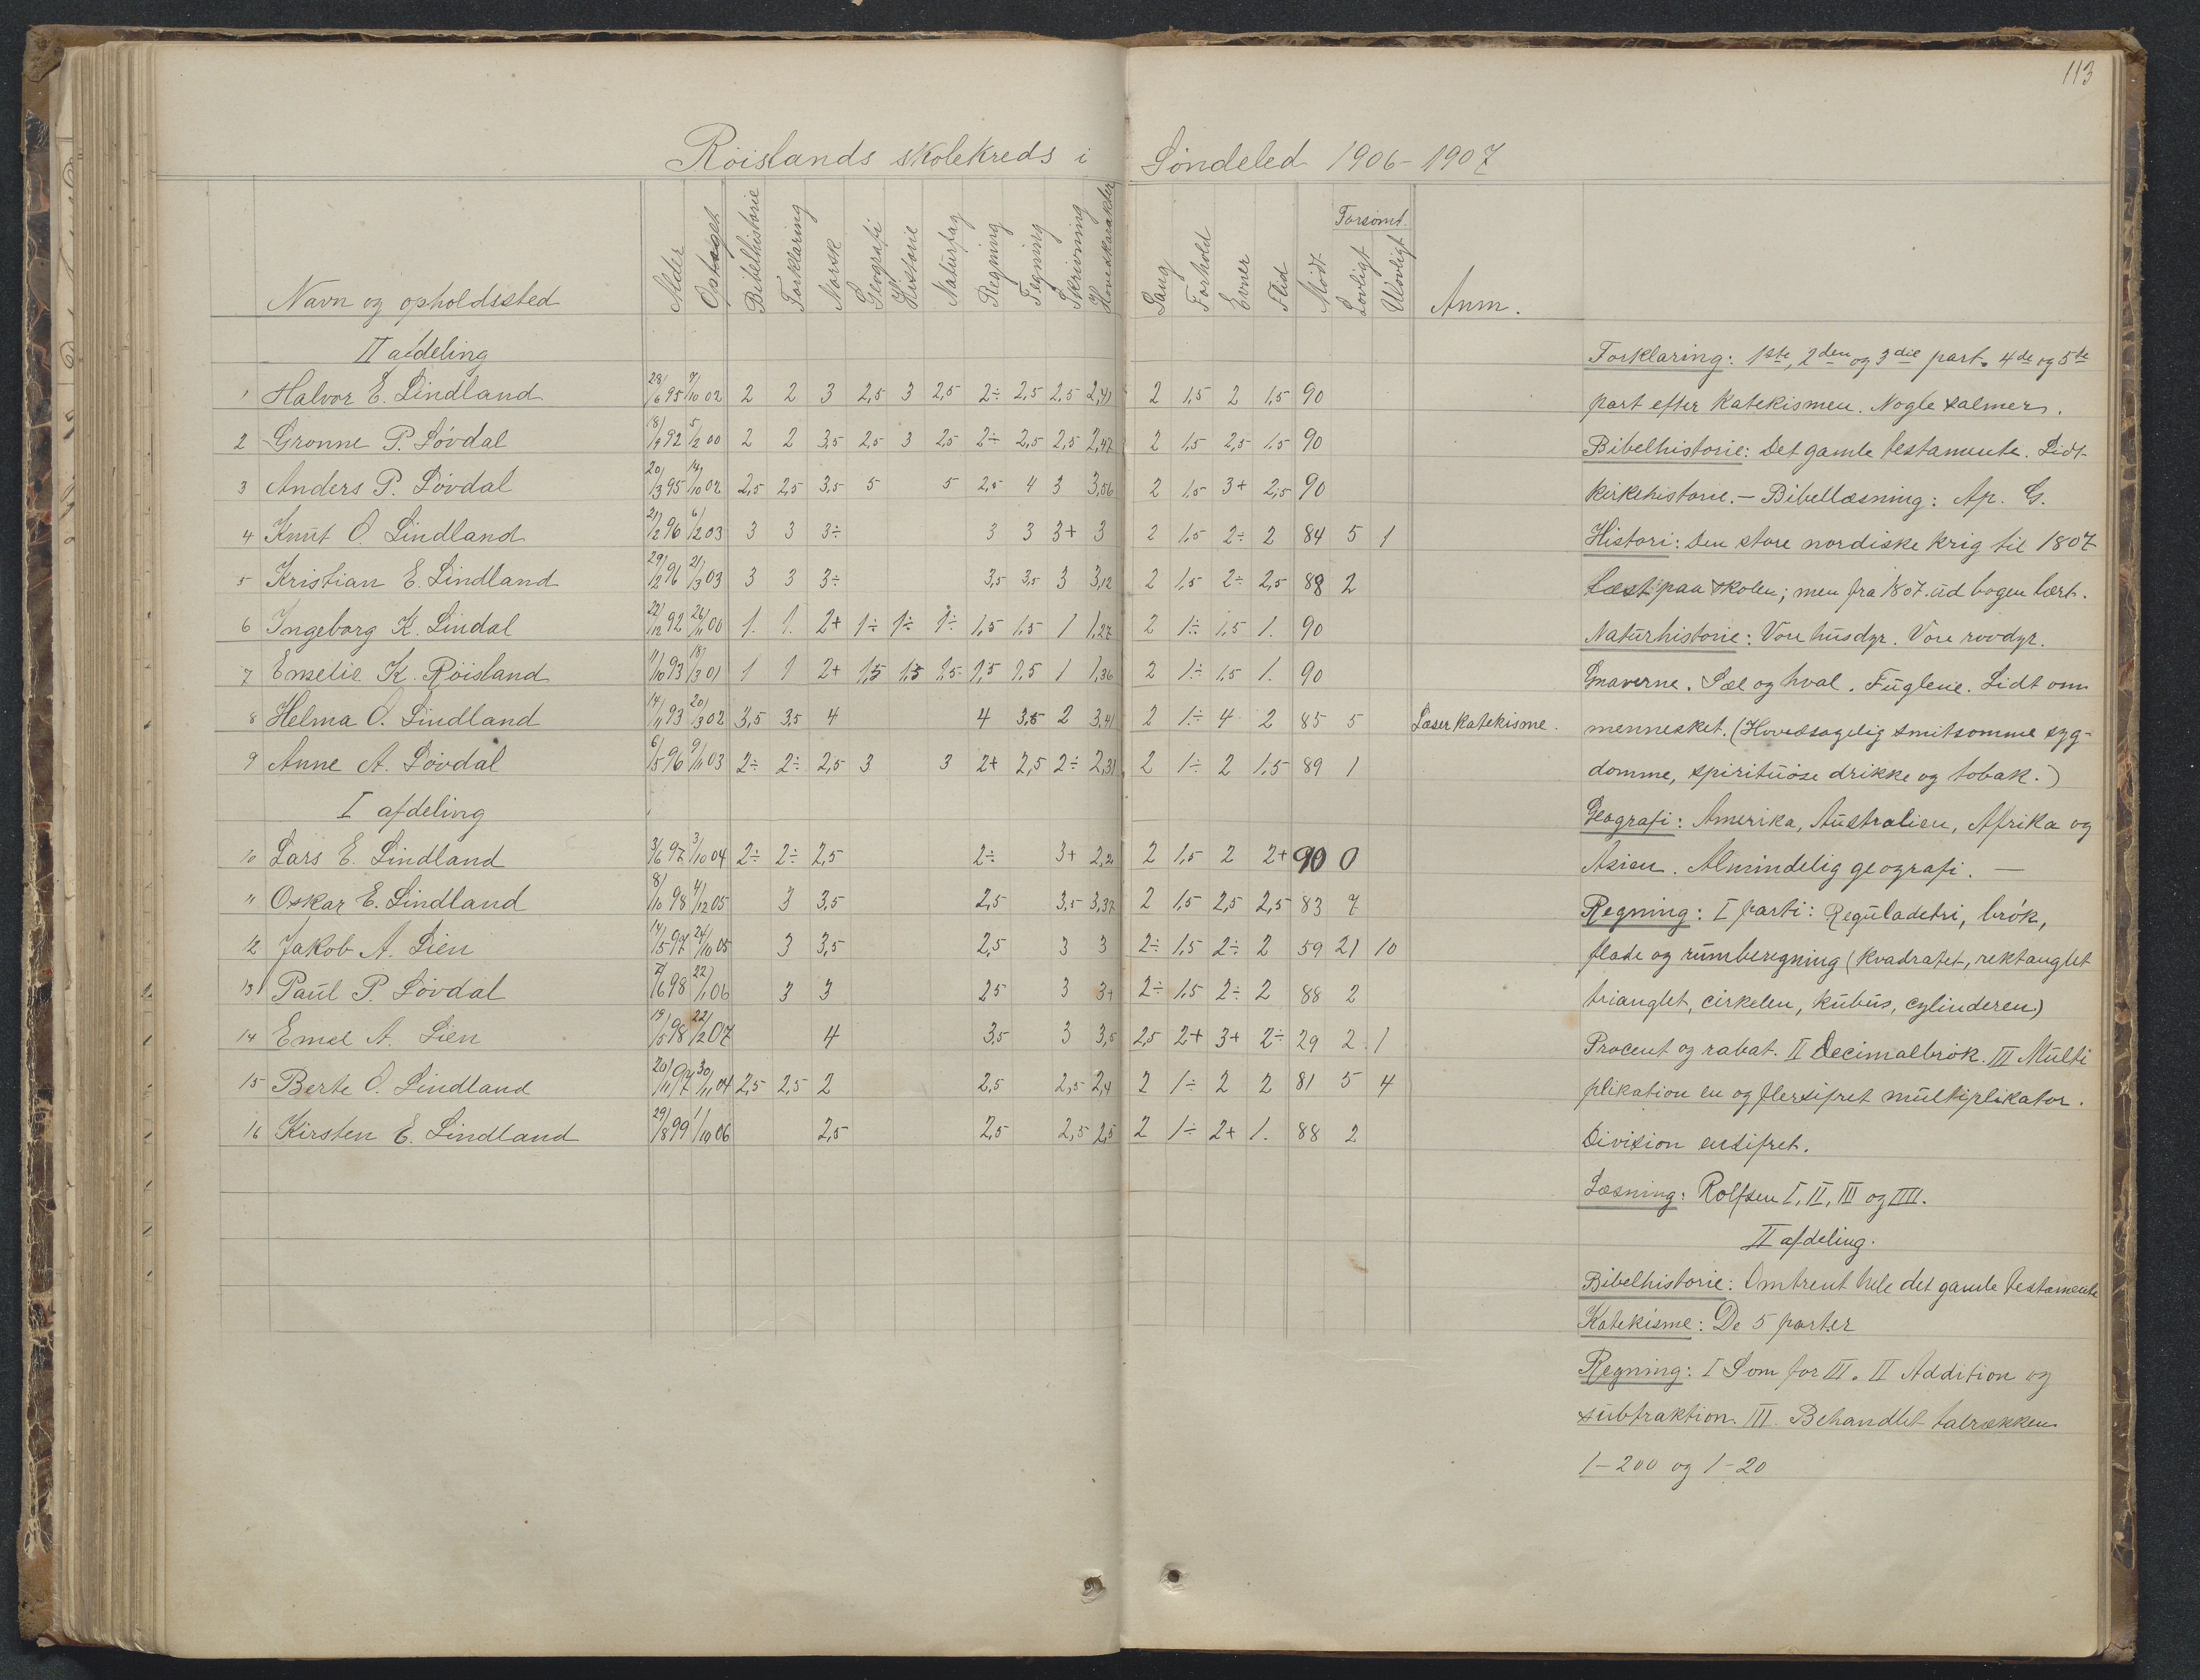 113
Röislands skolekreds i Söndeled 1906-1907
Navn og opholdssted Alder Optaget Bibelhistorie Forklaring Norsk Geografi Historie Naturfag Regning Tegning Skrivning Hovedkarakter Sang Forhold Evner Flid Mödt Forsömt Lovligt Ulovligt Anm.
II afdeling
1 Halvor E. Lindland 28/6 95 7/10 02 2 2 3 2,5 3 2,5 2÷ 2,5 2,5 2,41 2 1,5 2 1,5 90
2 Gronne P. Lövdal 18/9 92 5/2 00 2 2 3,5 2,5 3 2,5 2÷ 2,5 2,5 2,47 2 1,5 2,5 1,5 90
3 Anders P. Lövdal 20/3 95 14/10 02 2,5 2,5 3,5 5 5 2,5 4 3 3,56 2 1,5 3+ 2,5 90
4 Knut O. Lindland 21/2 96 6/2 03 3 3 3÷ 3 3 3+ 3 2 1,5 2÷ 2 84 5 1
5 Kristian E. Lindland 29/2 96 21/3 03 3 3 3÷ 3,5 3,5 3 3,12 2 1,5 2÷ 2,5 88 2
6 Ingeborg K. Lindal 22/12 92 26/11 00 1. 1. 2+ 1÷ 1÷ 1÷ 1,5 1,5 1 1,27 2 1÷ 1,5 1. 90
7 Emelie K. Röisland 11/10 93 18/3 01 1 1 2+ 1,5 1,5 1,5 1,5 1,5 1 1,36 2 1÷ 1,5 1. 90
8 Helma O. Lindland 14/11 93 20/3 02 3,5 3,5 4 4 3,5 2 3,41 2 1÷ 4 2 85 5 Læser katekisme.
9 Anne A. Lövdal 6/5 96 9/11 03 2÷ 2÷ 2,5 3 3 2+ 2,5 2÷ 2,31 2 1÷ 2 1,5 89 1
I afdeling
10 Lars E. Lindland 3/6 97 3/10 04 2÷ 2÷ 2,5 2÷ 3+ 2 1,5 2 2+ 90 0
11 Oskar E. Lindland 8/10 98 4/12 05 3 3,5 2,5 3,5 3,37 2 1,5 2,5 2,5 83 7
12 Jakob A. Lien 17/5 97 24/10 05 3 3,5 2,5 3 3 2÷ 1,5 2÷ 2 59 21 10
13 Paul P. Lövdal 7/6 98 22/1 06 3 3 2,5 3 3+ 2÷ 1,5 2÷ 2 88 2
14 Emel A. Lien 19/5 98 22/2 07 4 3,5 3 3,5 2,5 2+ 3+ 2÷ 29 2 1
15 Berte O. Lindland 20/11 97 30/11 04 2,5 2,5 2 2,5 2,5 2,4 2 1÷ 2 2 81 5 4
16 Kirsten E. Lindland 29/8 99 1/10 06 2,5 2,5 2,5 2,5 2 1÷ 2+ 1. 88 2
Forklaring: 1ste, 2den og 3die part. 4de og 5te
part efter katekismen. Nogle salmer.
Bibelhistorie: Det gamle testamente. Lidt
kirkehistorie. - Bibellæsning: Ap. G.
Histori: Den store nordiske krig til 1807
læst paa skolen; men fra 1807 ud bogen lært.
Naturhistorie: Vore husdyr. Vore rovdyr.
Gnaverne. Sæl og hval. Fuglene. Lidt om
mennesket. (Hovedsagelig smitsomme syg-
domme, spirituöse drikke og tobak.)
Geografi: Amerika, Australien, Afrika og
Asien. Almindelig geografi. -
Regning: I parti: Reguladetri, brök,
flade og rumberegning (kvadratet, rektanglet
trianglet, cirkelen, kubus, cylinderen)
Procent og rabat. II Decimalbrök. III Multi
plikation en og flersifret multiplikator.
Division ensifret.
Læsning: Rolfsen I, II, III og IIII.
II afdeling.
Bibelhistorie: Omtrent hele det gamle testamente
Katekisme: De 5 parter
Regning: I Som for III. II Addition og
subtraktion. III Behandlet talrækken
1-200 og 1-20